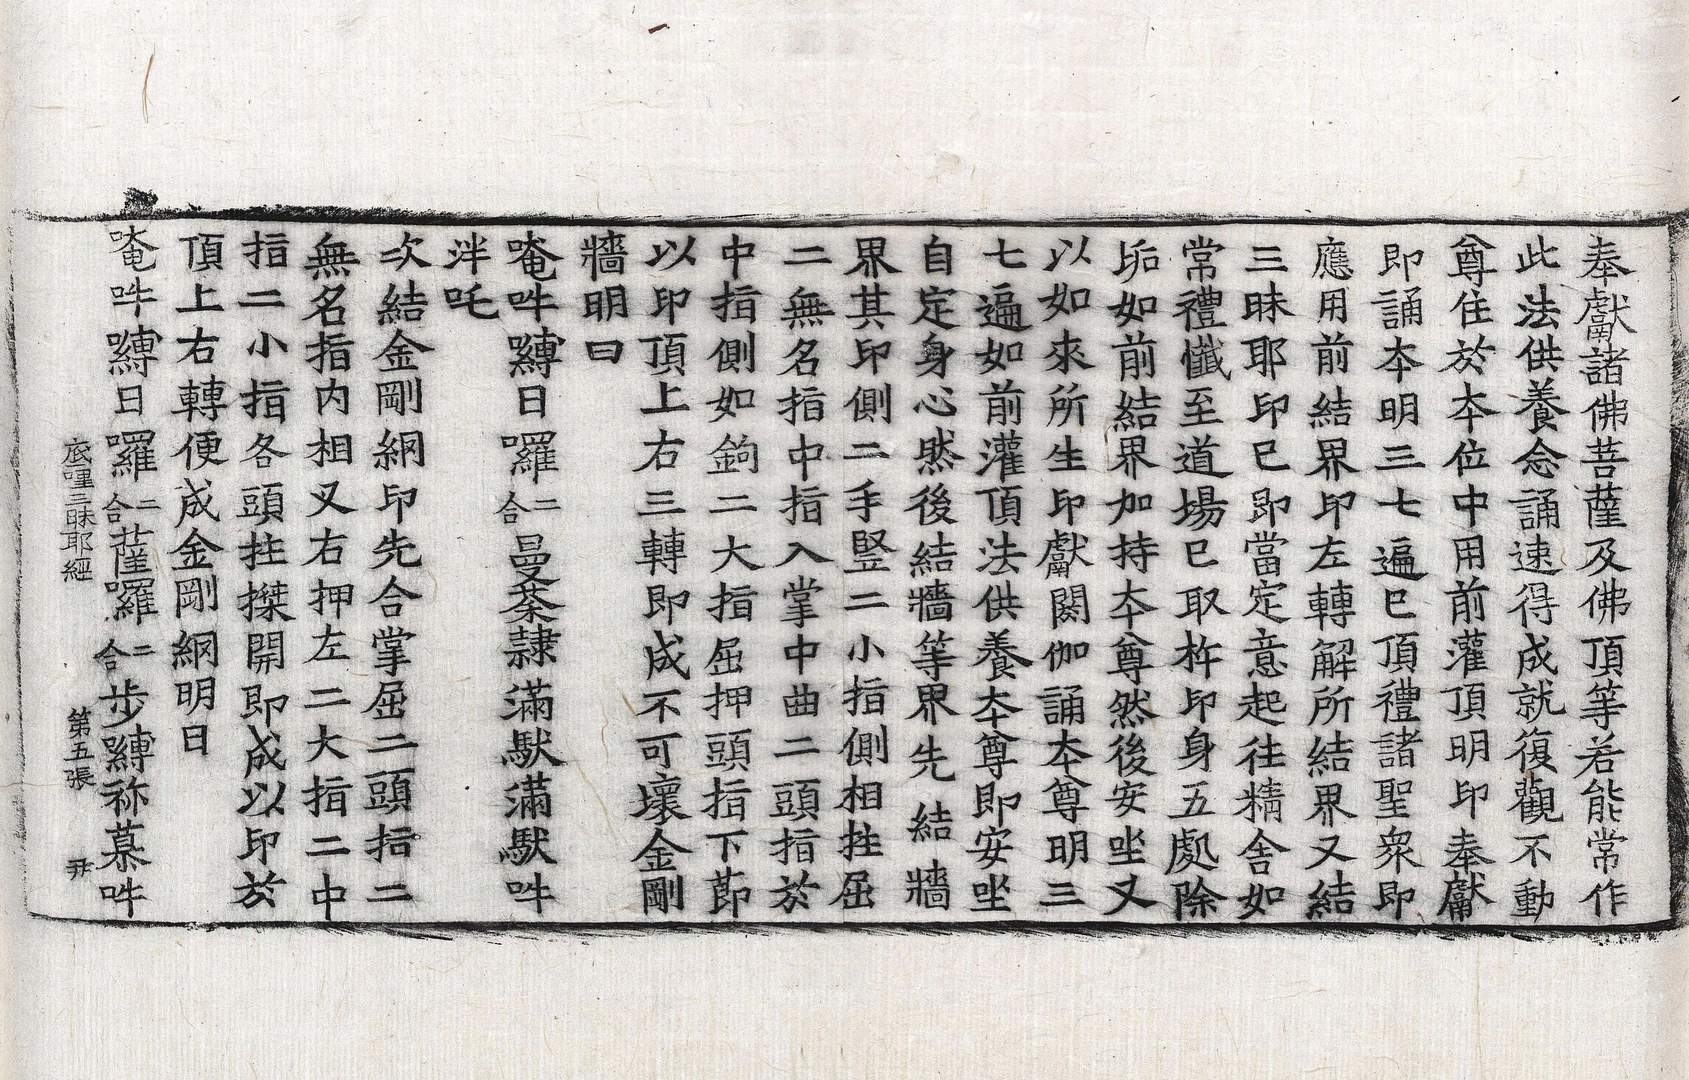 奉獻諸佛菩薩及佛頂等若能常作
此法供養念誦速得成就復觀不動
尊住於夲位中用前灌頂明印奉獻
即誦夲明三七遍已頂禮諸聖衆即
應用前結界印左轉解所結界又結
三昧耶印已即當定意起往精舍如
常禮懺至道場已取杵印身五處除
垢如前結界加持夲尊然後安坐又
以如來所生印獻閼伽誦夲尊明三
七遍如前灌頂法供養夲尊即安坐
自定身心然後結牆等界先結牆
界其印側二手竪二小指側相拄屈
二無名指中中指入掌中曲二頭指於
中指側如鉤二大指屈押頭指下節
以印頂上右三轉即成不可壞金剛
牆明曰
唵吽嚩日囉二合曼荼隷滿馱滿馱吽
泮吒
次結金剛網印先合掌屈二頭指二
無名指内相叉右押左二大指二中
指二小指各頭拄搩開即成以印於
頂上右轉便成金剛網明曰
唵吽嚩日囉二合薩囉二合步嚩祢慕吽
底哩三昧耶經 第五張